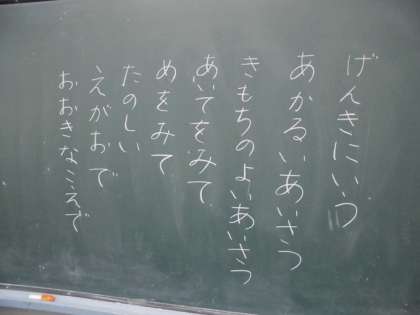 げんきにいう
あかるいあいさつ
きもちのよいあいさつ
あいてをみて
めをみて
たのしい
えがおで
おおきなこえで